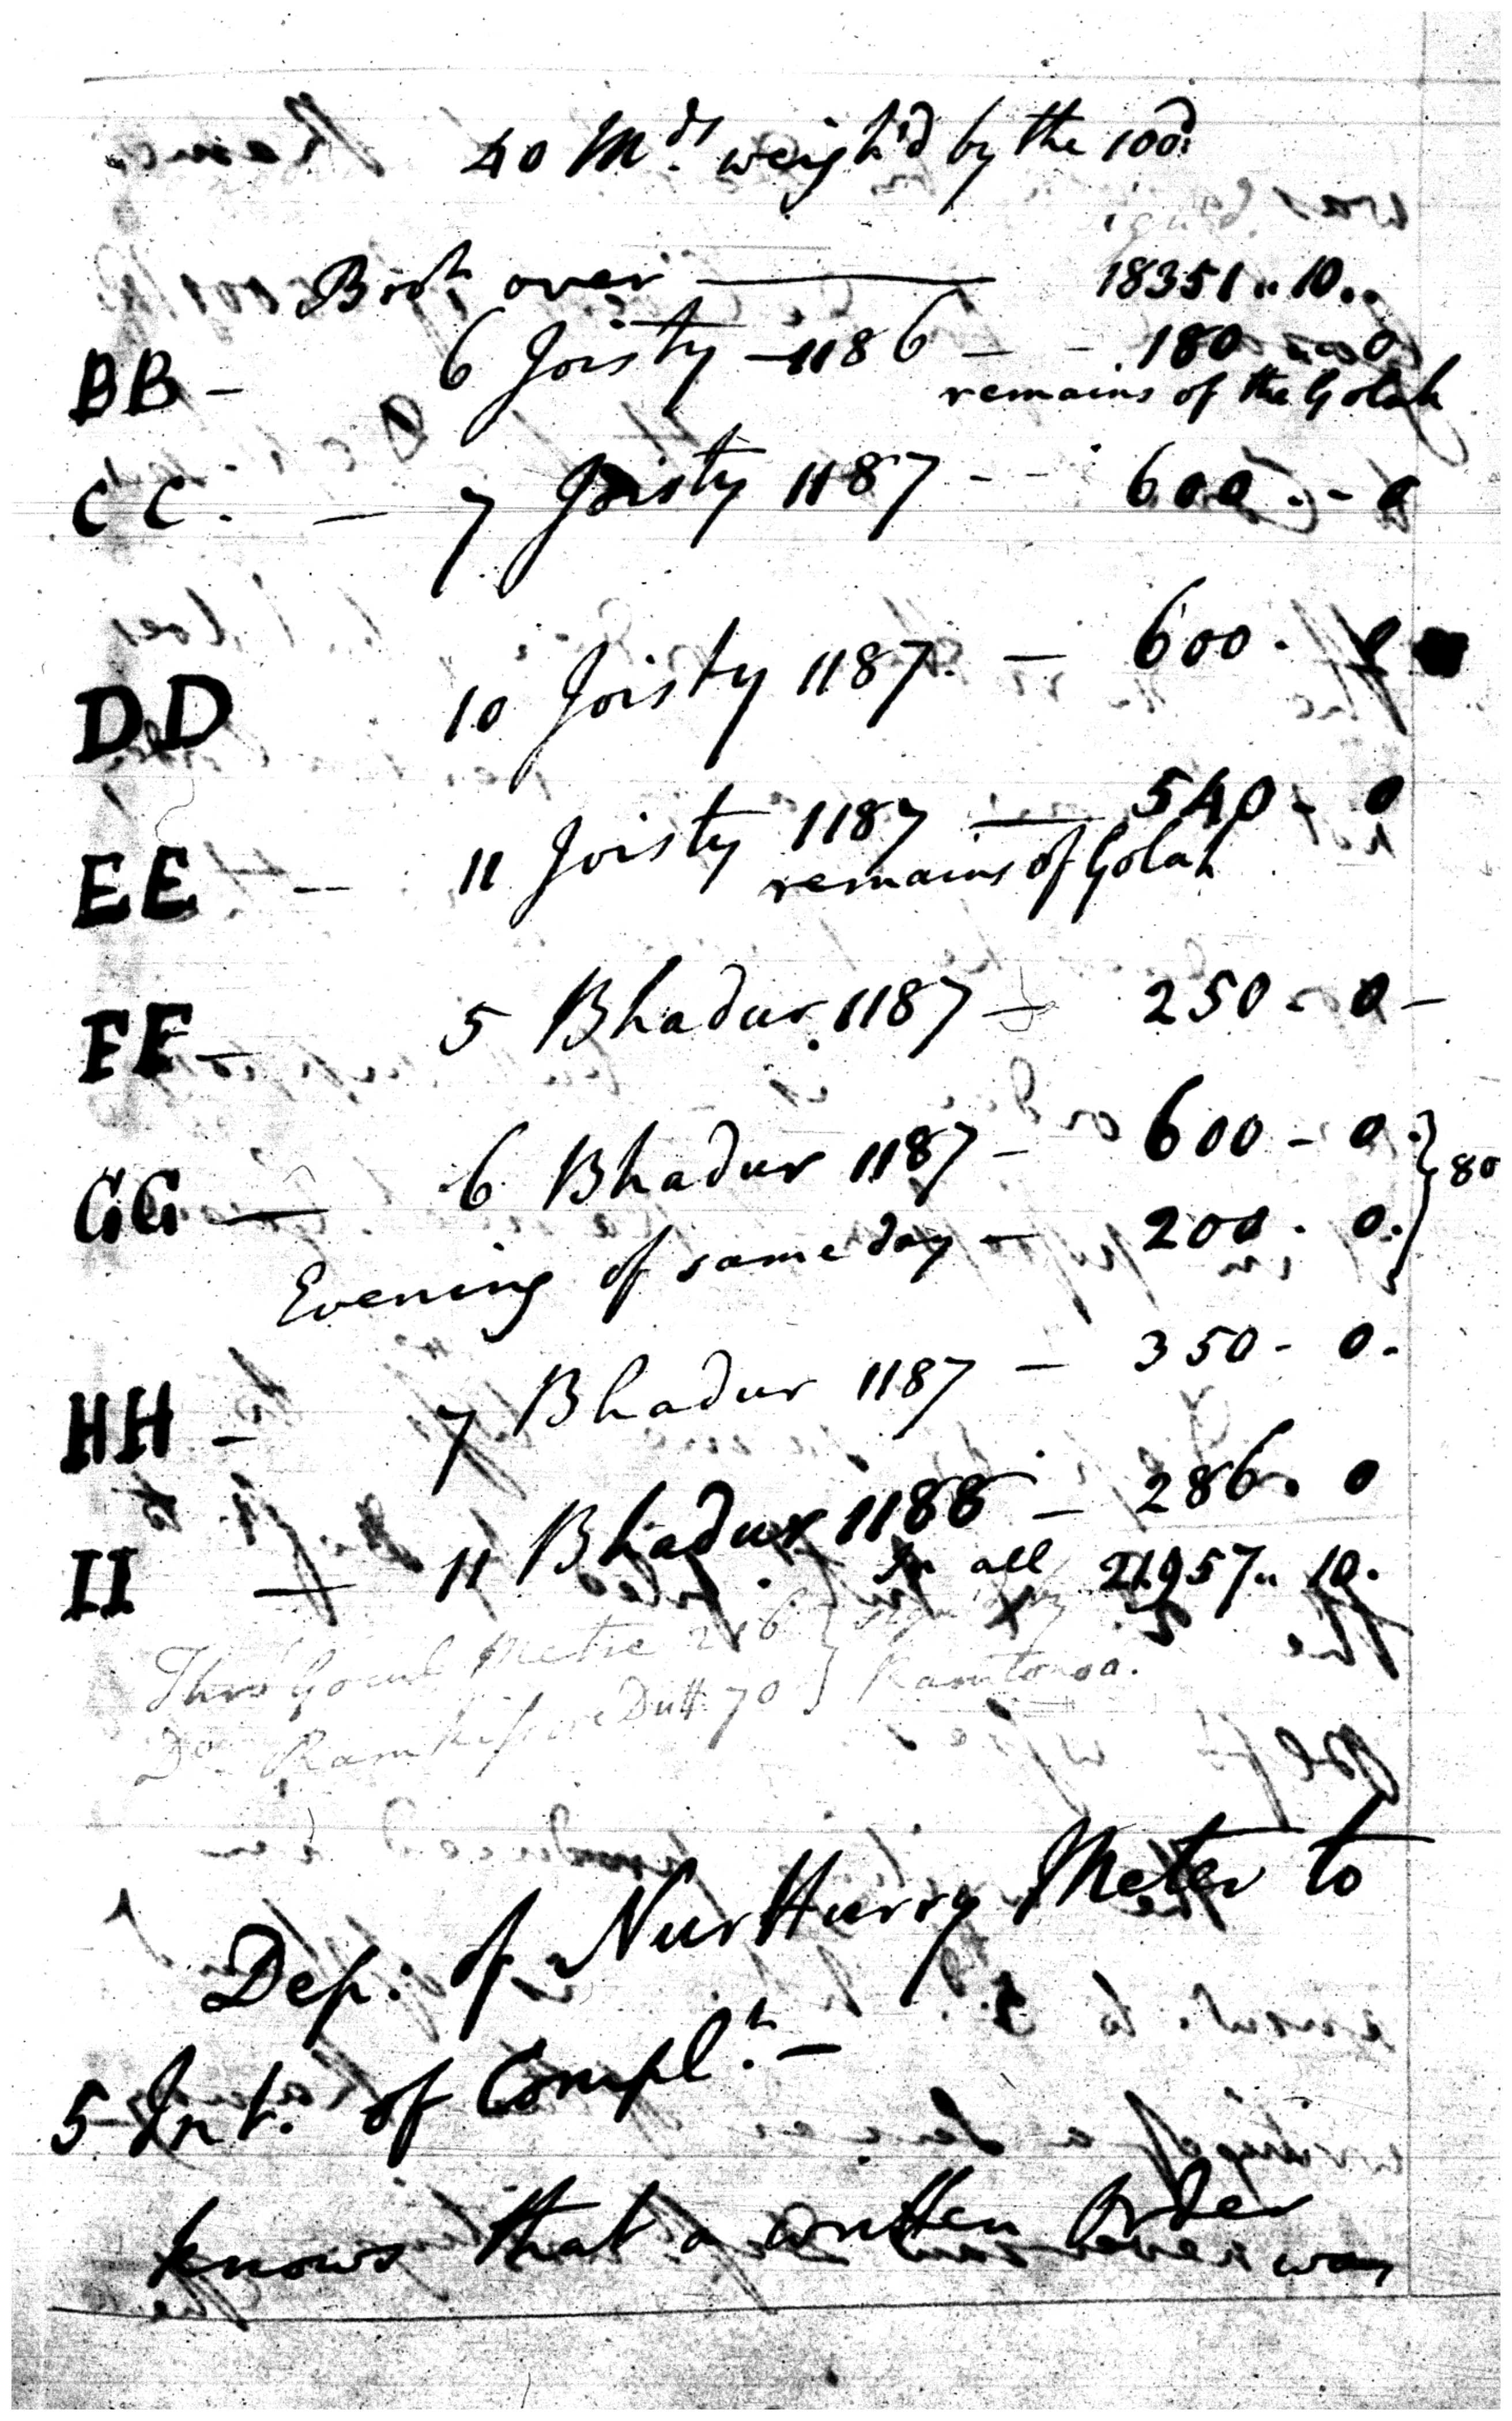 40 Mds. weigh'd by the 100d:
Brot over — 18351.. 10..
BB - 6 Joisty - 1186 - - 180 .. 0
remains of the Golah
CC. — 7 Joisty 1187 - - 600. - 0
DD 10 Joisty 1187. — 600.
EE — 11 Joisty 1187 — 540 - 0
remains of Golah
FF — 5 Bhadur. 1187 — 250 - 0 -
GG — 6 Bhadur 1187 - 600 - 0. } 80
Evening of same day — 200. 0.
HH — 7 Bhadur 1187 — 350 - 0.
II — 11 Bhadur 1188 — 286. 0
In all 21957.. 10.
Thro' Gocul Metre 216 }
Do Ramkissore Dutt 70 } Ramtonoo.
Dep: of NurHurry Meter to
5 Int. of Complt. —
knows that a written Order
was